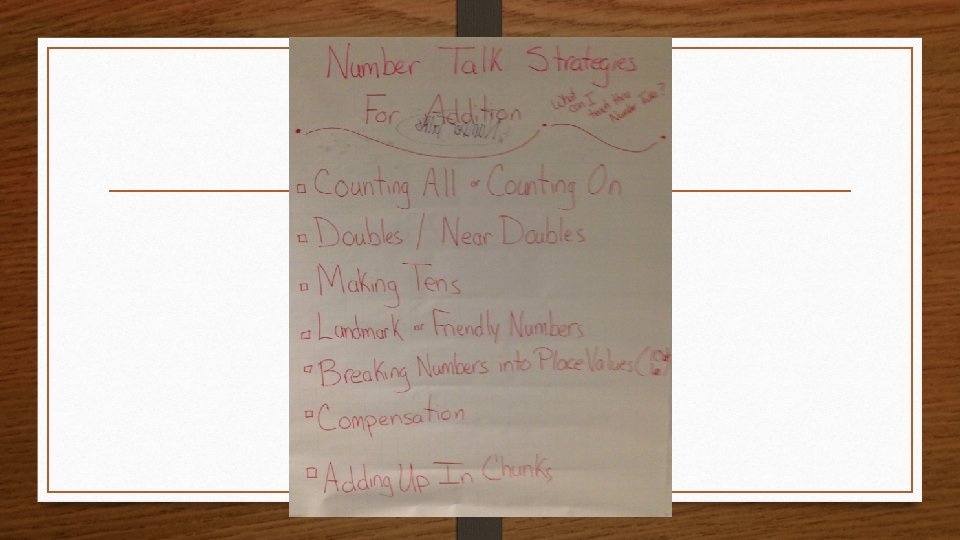 Number Talk Strategies
For Addition
What
can I
Counting All or Counting On
Doubles / Near Doubles
Making Tens
Landmark or Friendly Numbers
Breaking Numbers into Place Values
Compensation
Adding Up In Chunks